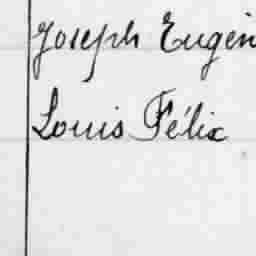 Joseph Eugèn
Louis Félix